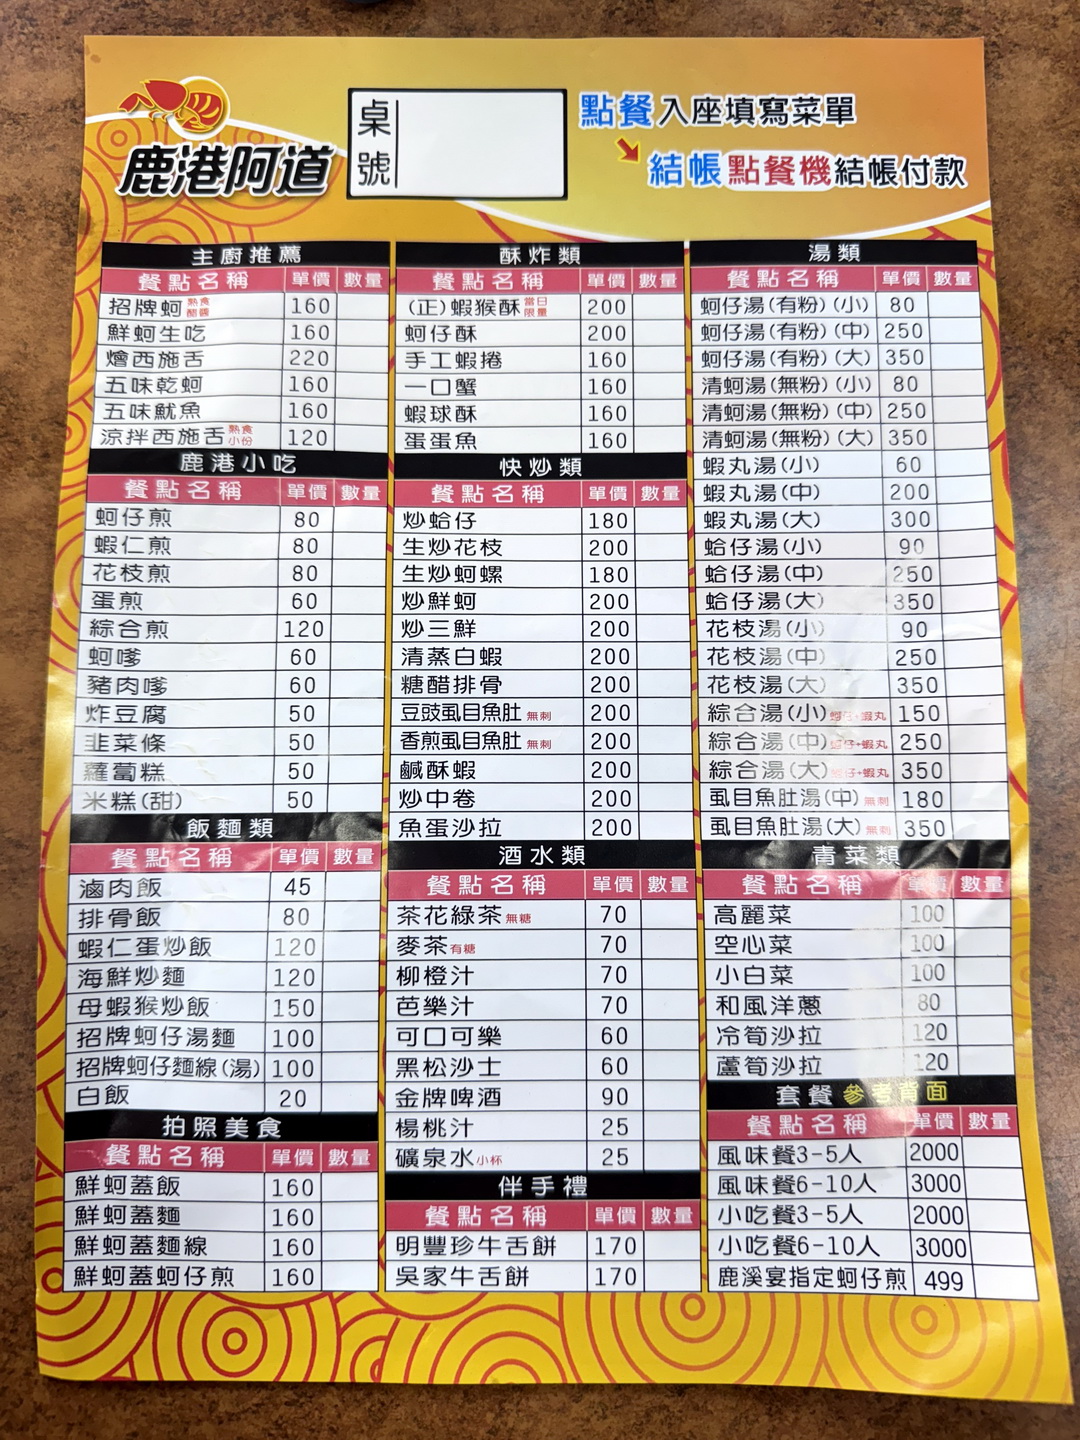 鹿港阿道
桌號
點餐 入座填寫菜單
結帳 點餐機結帳付款
主廚推薦
餐點名稱 單價 數量
招牌蚵 熱食 醋醬 160
鮮蚵生吃 160
燴西施舌 220
五味乾蚵 160
五味魷魚 160
涼拌西施舌 熱食 小份 120
鹿港小吃
餐點名稱 單價 數量
蚵仔煎 80
蝦仁煎 80
花枝煎 80
蛋煎 60
綜合煎 120
蚵嗲 60
豬肉嗲 60
炸豆腐 50
韭菜條 50
蘿蔔糕 50
米糕(甜) 50
飯麵類
餐點名稱 單價 數量
滷肉飯 45
排骨飯 80
蝦仁蛋炒飯 120
海鮮炒麵 120
母蝦猴炒飯 150
招牌蚵仔湯麵 100
招牌蚵仔麵線(湯) 100
白飯 20
拍照美食
餐點名稱 單價 數量
鮮蚵蓋飯 160
鮮蚵蓋麵 160
鮮蚵蓋麵線 160
鮮蚵蓋蚵仔煎 160
酥炸類
餐點名稱 單價 數量
(正)蝦猴酥 當日 限量 200
蚵仔酥 200
手工蝦捲 160
一口蟹 160
蝦球酥 160
蛋蛋魚 160
快炒類
餐點名稱 單價 數量
炒蛤仔 180
生炒花枝 200
生炒蚵螺 180
炒鮮蚵 200
炒三鮮 200
清蒸白蝦 200
糖醋排骨 200
豆豉虱目魚肚 無刺 200
香煎虱目魚肚 無刺 200
鹹酥蝦 200
炒中卷 200
魚蛋沙拉 200
酒水類
餐點名稱 單價 數量
茶花綠茶 無糖 70
麥茶 有糖 70
柳橙汁 70
芭樂汁 70
可口可樂 60
黑松沙士 60
金牌啤酒 90
楊桃汁 25
礦泉水 小杯 25
伴手禮
餐點名稱 單價 數量
明豐珍牛舌餅 170
吳家牛舌餅 170
湯類
餐點名稱 單價 數量
蚵仔湯(有粉)(小) 80
蚵仔湯(有粉)(中) 250
蚵仔湯(有粉)(大) 350
清蚵湯(無粉)(小) 80
清蚵湯(無粉)(中) 250
清蚵湯(無粉)(大) 350
蝦丸湯(小) 60
蝦丸湯(中) 200
蝦丸湯(大) 300
蛤仔湯(小) 90
蛤仔湯(中) 250
蛤仔湯(大) 350
花枝湯(小) 90
花枝湯(中) 250
花枝湯(大) 350
綜合湯(小) 蚵仔+蝦丸 150
綜合湯(中) 蚵仔+蝦丸 250
綜合湯(大) 蚵仔+蝦丸 350
虱目魚肚湯(中) 無刺 180
虱目魚肚湯(大) 無刺 350
青菜類
餐點名稱 單價 數量
高麗菜 100
空心菜 100
小白菜 100
和風洋蔥 80
冷筍沙拉 120
蘆筍沙拉 120
套餐 參考背面
餐點名稱 單價 數量
風味餐3-5人 2000
風味餐6-10人 3000
小吃餐3-5人 2000
小吃餐6-10人 3000
鹿溪宴指定蚵仔煎 499